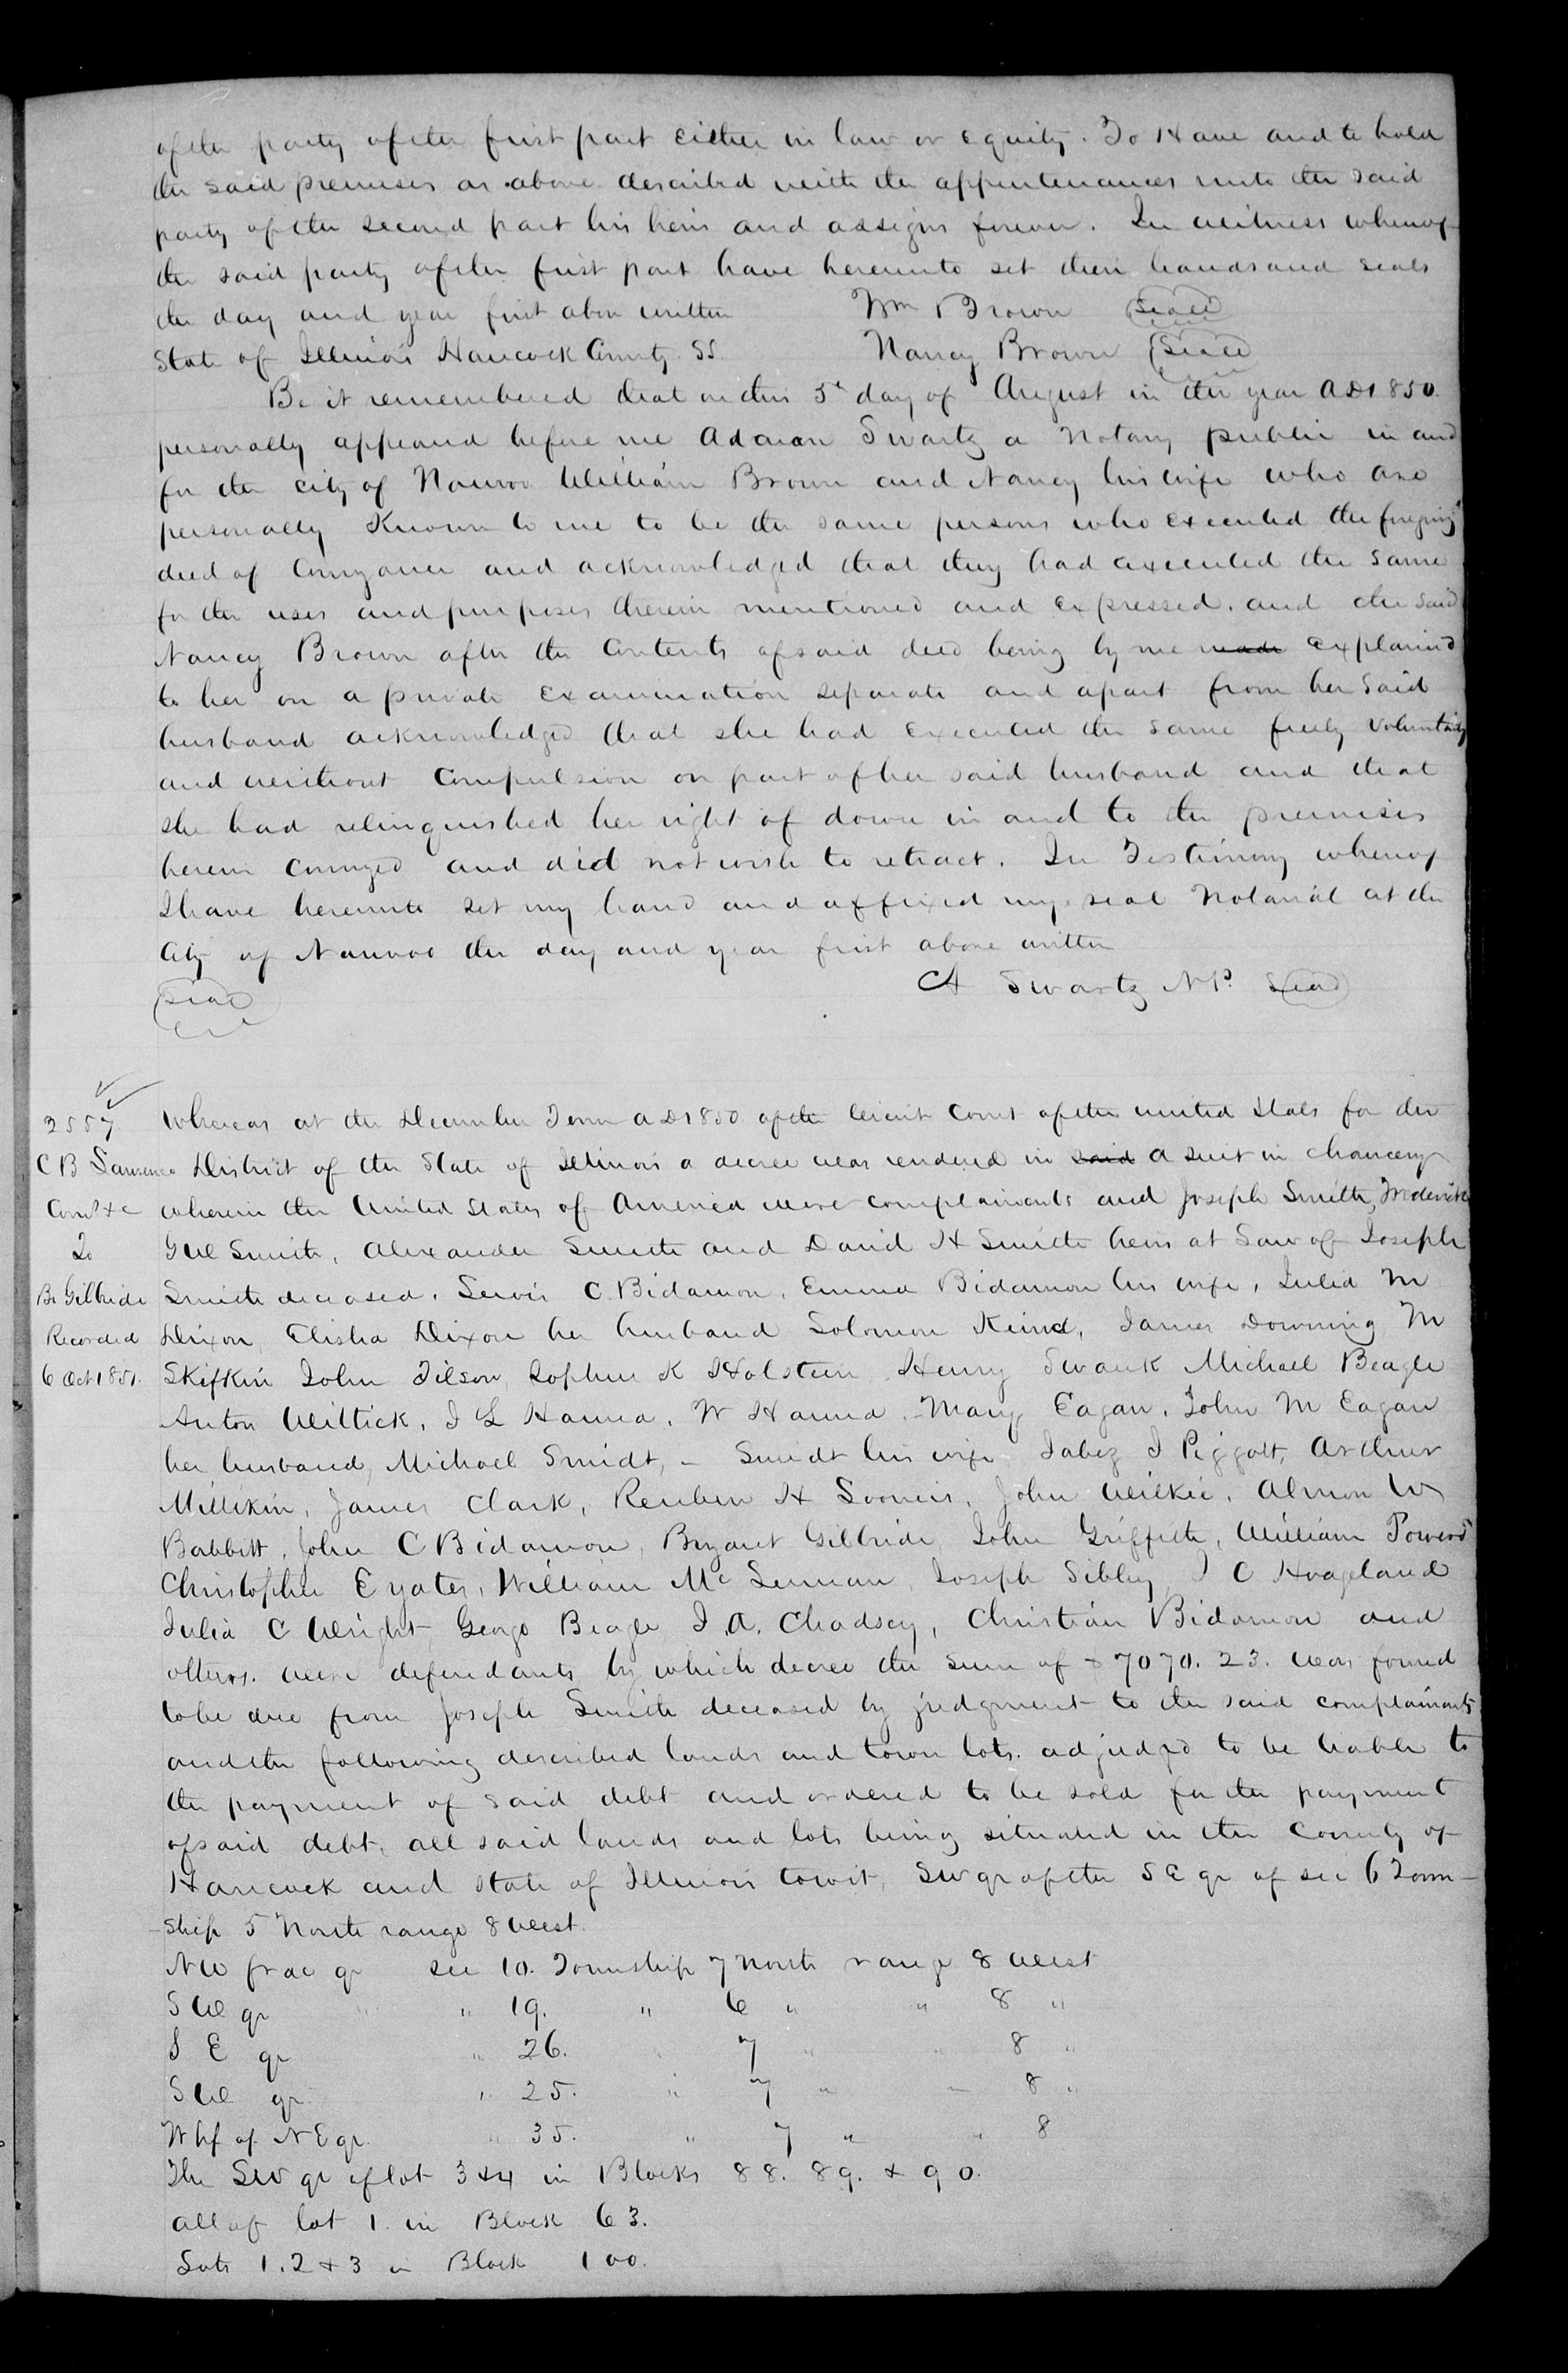 of the party of the first part either in law or equity. To Have and to hold
the said premises as above described with the appurtenances unto the said
party of the second part his heirs and assigns forever. In witness whereof
the said party of the first part have hereunto set their hands and seals
the day and year first above written Wm Brown Seal
State of Illinois Hancock County SS. Nancy Brown Seal
Be it remembered that on this 5th day of August in the year AD 1850.
personally appeared before me Adrian Swartz a Notary public in and
for the city of Nauvoo William Brown and Nancy his wife who are
personally Known to me to be the same persons who executed the foregoing
deed of Conveyance and acknowledged that they had executed the same
for the uses and purposes therein mentioned and expressed. and the said
Nancy Brown after the Contents of said deed being by me made explained
to her on a private examination separate and apart from her said
husband acknowledged that she had executed the same freely voluntarily
and without Compulsion on part of her said husband and that
she had relinquished her right of dower in and to the premises
herein conveyed and did not wish to retract. In Testimony whereof
I have hereunto set my hand and affixed my seal Notarial at the
City of Nauvoo the day and year first above written
Seal A Swartz N.P. Seal
2557 Whereas at the December Term AD 1850. of the Circuit Court of the united States for the
C B Lawrence District of the State of Illinois a decree was rendered in said a suit in chancery
Comr &c wherein the United States of America were complainants and Joseph Smith, Frederick
To G W Smith, Alexander Smith and David H Smith heirs at Law of Joseph
B. Gilbride Smith deceased. Lewis C. Bidamon, Emma Bidamon his wife, Julia M
Recorded Dixon, Elisha Dixon her husband Solomon Kund, James Downing M
6 Oct 1851. Skifkin John Tilson, Sophia K Holstein, Henry Swank Michael Beagle
Anton Wittick, J L Hanna, W Hanna, Mary Eagan, John M Eagan
her husband, Michael Smidt, – Smidt his wife Jabez J Piggott, Arthur
Millikin, James Clark, Reuben H Loomis, John Wilkie, Almon W
Babbitt, John C Bidamon, Bryant Gilbride, John Griffith, William Powers
Christopher E Yates, William Mc Lennan Joseph Sibley, J C Hoageland
Julia C Wright, George Beagle J. A. Chadsey, Christian Bidamon and
others. were defendants by which decree the sum of $7070.23. was found
to be due from Joseph Smith deceased by judgment to the said complainants
and the following described lands and town lots. adjudged to be liable to
the payment of said debt and ordered to be sold for the payment
of said debt. all said lands and lots being situated in the County of
Hancock and State of Illinois towit, SW qr of the SE qr of sec 6 Town-
-ship 5 North range 8 West.
NW frac qr sec 10. Township 7 North range 8 West
SW qr " " 19. " 6 " " 8 "
S E qr " 26. " 7 " " 8 "
SW qr. " 25. " 7 " " 8 "
W hf of NE qr. " 35. " 7 " " 8
The SW qr of lot 3 & 4 in Blocks 88. 89. & 90.
all of lot 1. in Block 63.
Lots 1.2 & 3 in Block 100.